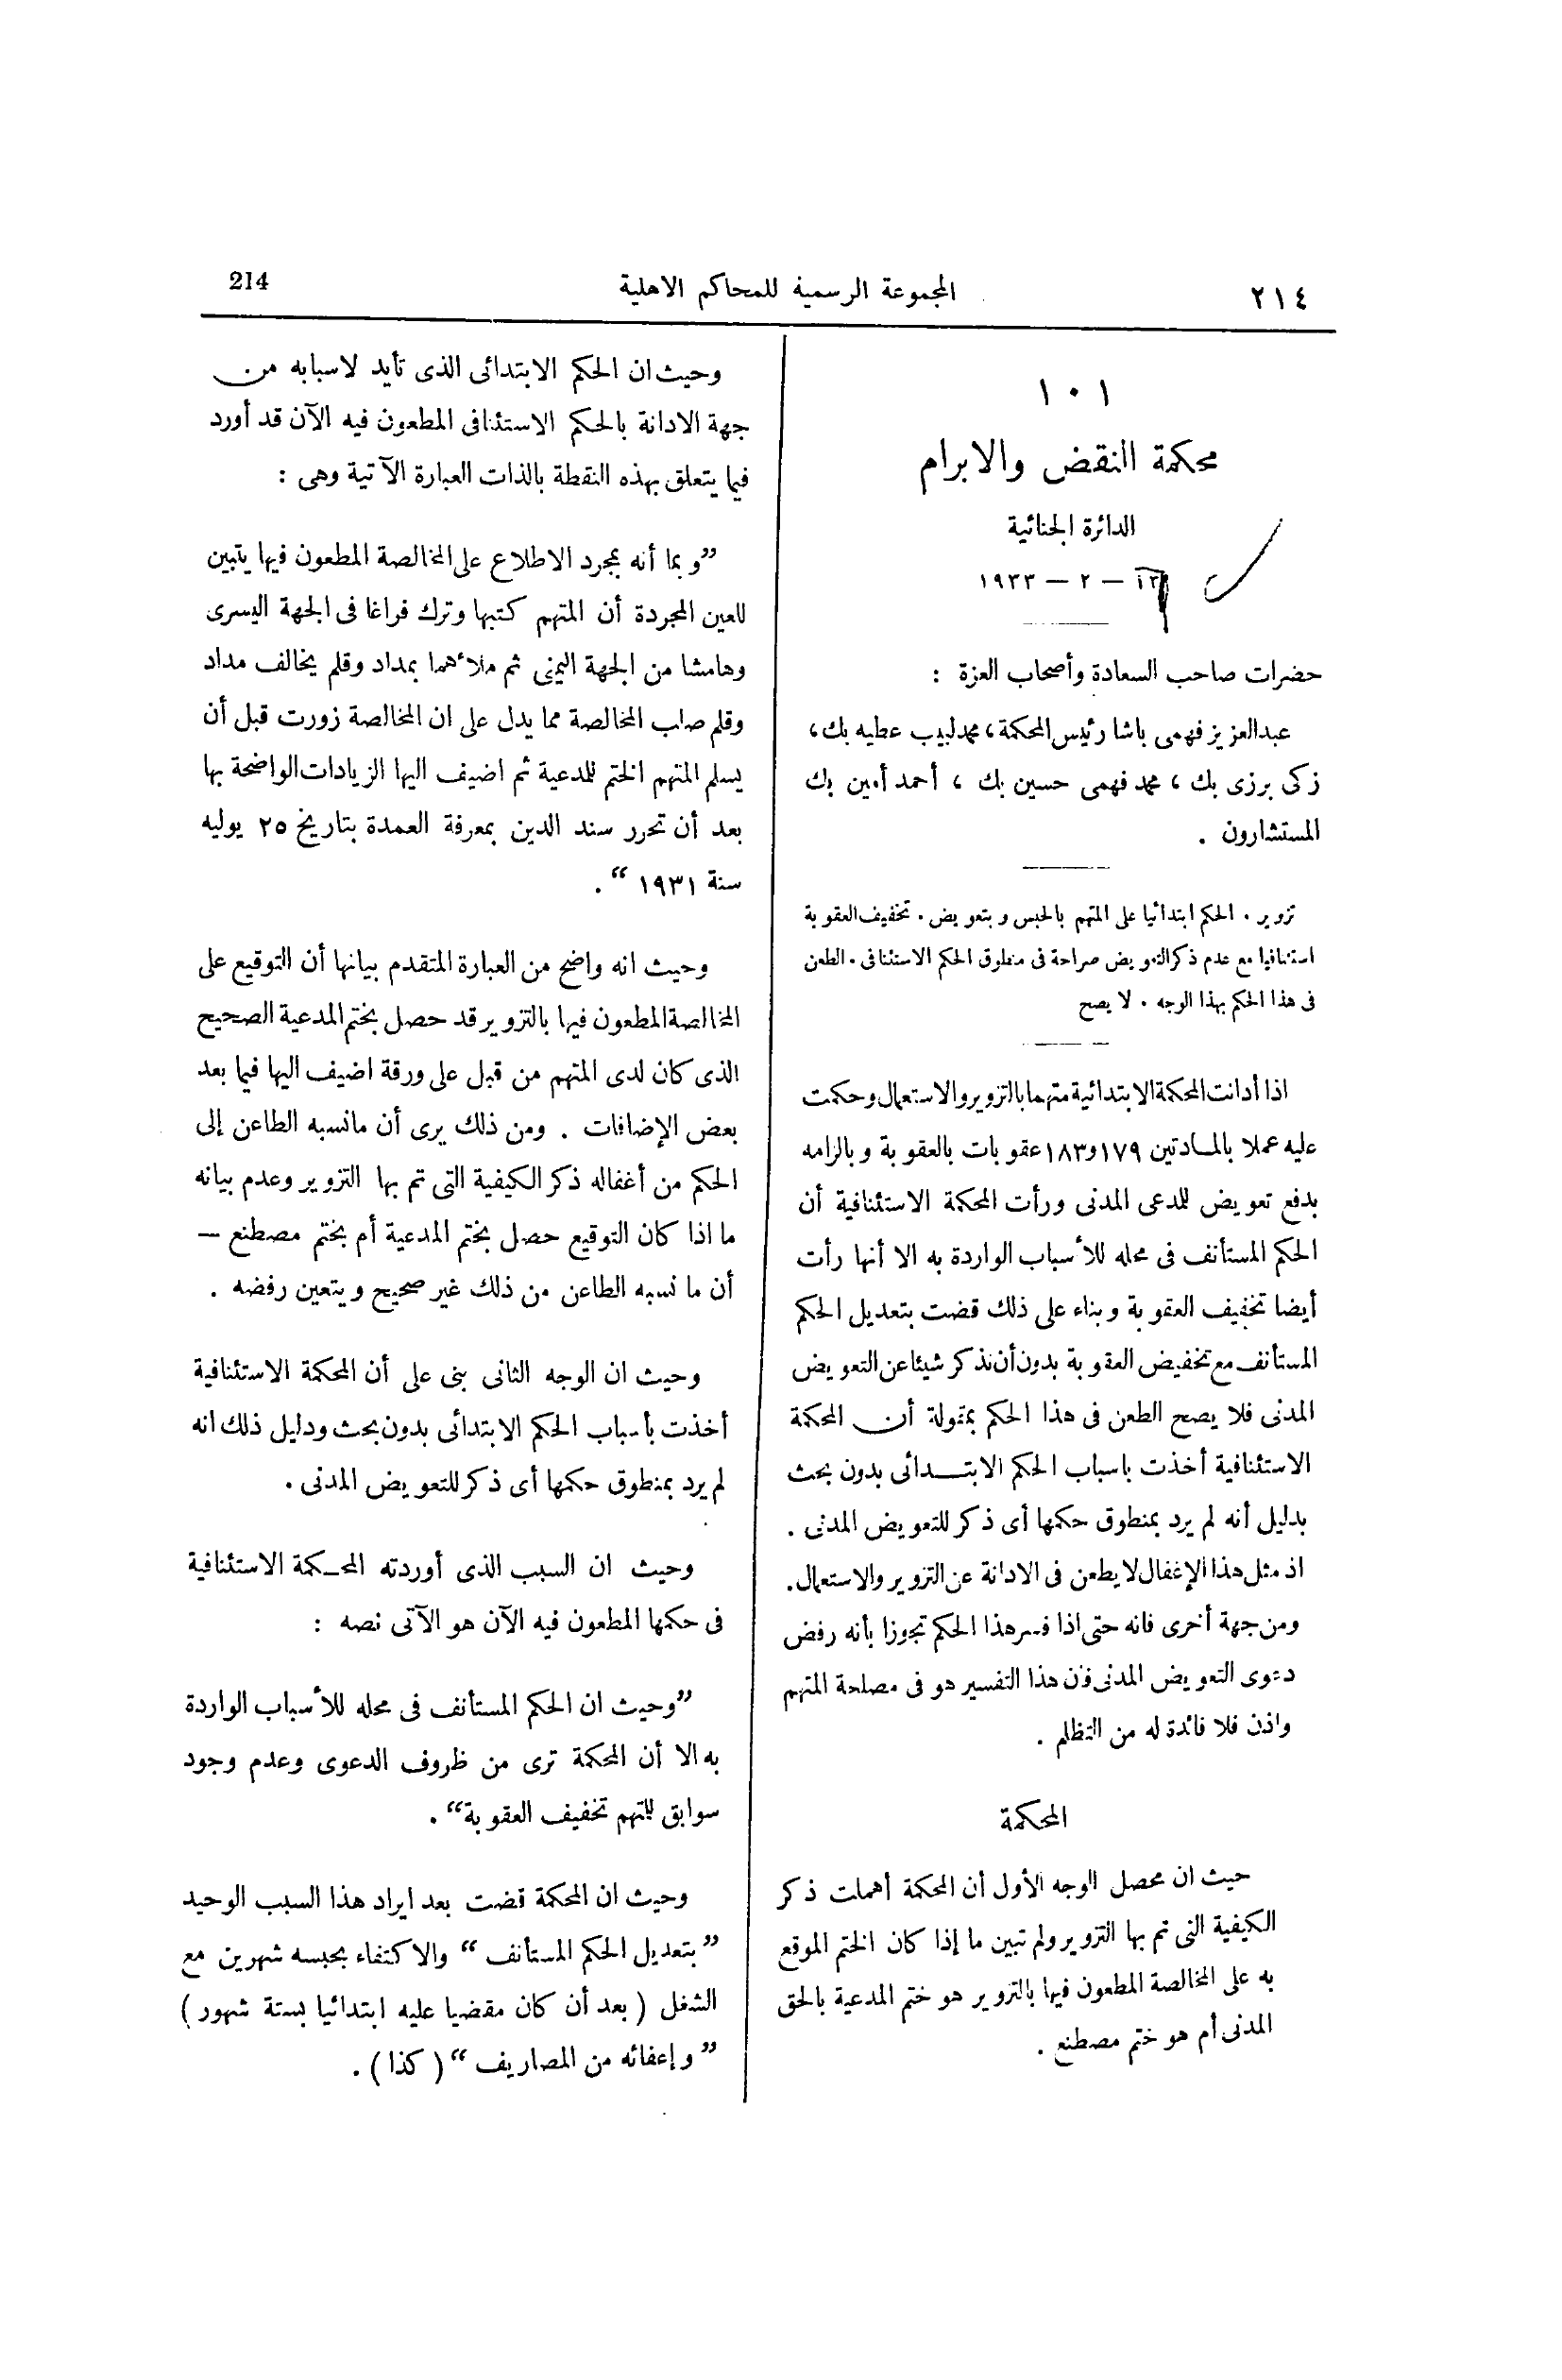 ٢١٤
المجموعة الرسمية للمحاكم الاهلية
214
١٠١
محكمة النقض والابرام
الدائرة الجنائية
١٣ — ٢ — ١٩٣٣
حضرات صاحب السعادة وأصحاب العزة :
عبدالعزيز فهمى باشا رئيس المحكمة، محمد لبيب عطيه بك،
زكى برزى بك ، محمد فهمى حسين بك ، أحمد أمين بك
المستشارون .
تزوير . الحكم ابتدائيا على المتهم بالحبس وبتعويض . تخفيف العقوبة
استئنافيا مع عدم ذكر التعويض صراحة فى منطوق الحكم الاستئنافى . الطعن
فى هذا الحكم بهذا الوجه . لا يصح
اذا أدانت المحكمة الابتدائية متهما بالتزوير والاستعمال وحكمت
عليه عملا بالمادتين ١٧٩ و١٨٣ عقوبات بالعقوبة وبالزامه
بدفع تعويض للمدعى المدنى ورأت المحكمة الاستئنافية أن
الحكم المستأنف فى محله للأسباب الواردة به الا أنها رأت
أيضا تخفيف العقوبة وبناء على ذلك قضت بتعديل الحكم
المستأنف مع تخفيض العقوبة بدون أن تذكر شيئا عن التعويض
المدنى فلا يصح الطعن فى هذا الحكم بمقولة أن المحكمة
الاستئنافية أخذت باسباب الحكم الابتدائى بدون بحث
بدليل أنه لم يرد بمنطوق حكمها أى ذكر للتعويض المدنى .
اذ مثل هذا الإغفال لا يطعن فى الادانة عن التزوير والاستعمال .
ومن جهة أخرى فانه حتى اذا فسر هذا الحكم تجوزا بأنه رفض
دعوى التعويض المدنى فان هذا التفسير هو فى مصلحة المتهم
واذن فلا فائدة له من التظلم .
المحكمة
حيث ان محصل الوجه الأول أن المحكمة أهملت ذكر
الكيفية التى تم بها التزوير ولم تبين ما إذا كان الختم الموقع
به على المخالصة المطعون فيها بالتزوير هو ختم المدعية بالحق
المدنى أم هو ختم مصطنع .
وحيث ان الحكم الابتدائى الذى تأيد لاسبابه من
جهة الادانة بالحكم الاستئنافى المطعون فيه الآن قد أورد
فيما يتعلق بهذه النقطة بالذات العبارة الآتية وهى :
”وبما أنه بمجرد الاطلاع على المخالصة المطعون فيها يتبين
للعين المجردة أن المتهم كتبها وترك فراغا فى الجهة اليسرى
وهامشا من الجهة اليمنى ثم ملاءهما بمداد وقلم يخالف مداد
وقلم صلب المخالصة مما يدل على ان المخالصة زورت قبل أن
يسلم المتهم الختم للمدعية ثم اضيف اليها الزيادات الواضحة بها
بعد أن تحرر سند الدين بمعرفة العمدة بتاريخ ٢٥ يوليه
سنة ١٩٣١ “ .
وحيث انه واضح من العبارة المتقدم بيانها أن التوقيع على
المخالصة المطعون فيها بالتزوير قد حصل بختم المدعية الصحيح
الذى كان لدى المتهم من قبل على ورقة اضيف اليها فيما بعد
بعض الإضافات . ومن ذلك يرى أن مانسبه الطاعن إلى
الحكم من أغفاله ذكر الكيفية التى تم بها التزوير وعدم بيانه
ما اذا كان التوقيع حصل بختم المدعية أم بختم مصطنع —
أن ما نسبه الطاعن من ذلك غير صحيح ويتعين رفضه .
وحيث ان الوجه الثانى بنى على أن المحكمة الاستئنافية
أخذت بأسباب الحكم الابتدائى بدون بحث ودليل ذلك انه
لم يرد بمنطوق حكمها أى ذكر للتعويض المدنى .
وحيث ان السبب الذى أوردته المحكمة الاستئنافية
فى حكمها المطعون فيه الآن هو الآتى نصه :
”وحيث ان الحكم المستأنف فى محله للأسباب الواردة
به الا أن المحكمة ترى من ظروف الدعوى وعدم وجود
سوابق للمتهم تخفيف العقوبة“ .
وحيث ان المحكمة قضت بعد ايراد هذا السبب الوحيد
” بتعديل الحكم المستأنف “ والاكتفاء بحبسه شهرين مع
الشغل ( بعد أن كان مقضيا عليه ابتدائيا بستة شهور )
” وإعفائه من المصاريف “ ( كذا ) .